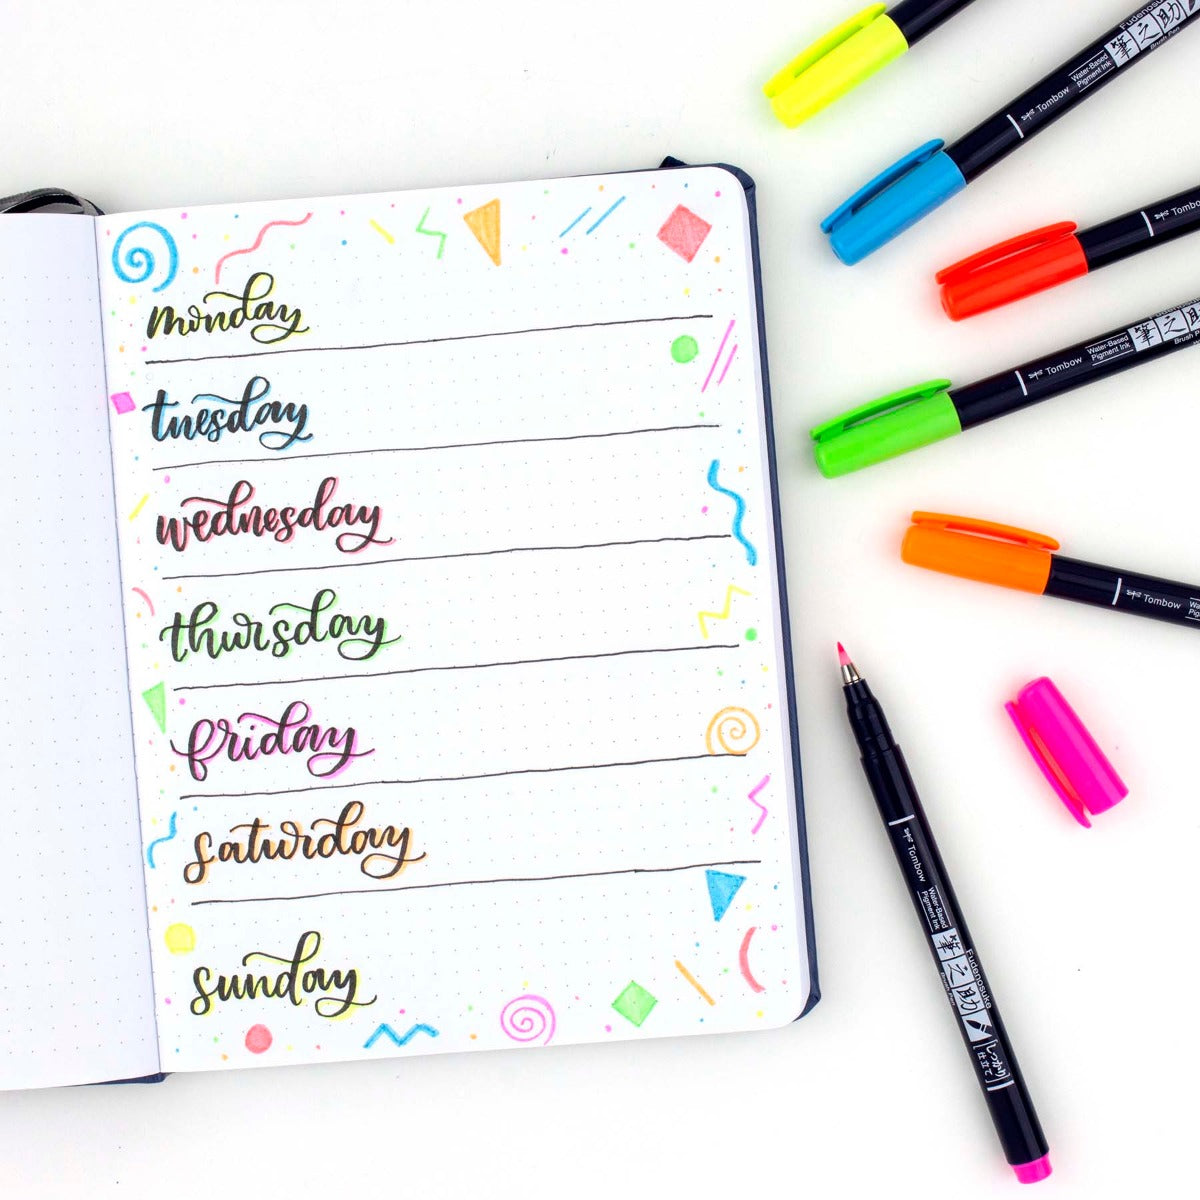 monday
tuesday
wednesday
thursday
friday
saturday
sunday
Fudenosuke
Brush Pen
筆之助
Water-Based
Pigment Ink
Tombow
Tombow
Brush Pen
筆之助
Water-Based
Pigment Ink
Tombow
Tombow
Tombow
Water-Based
Pigment Ink
筆之助
Fudenosuke
Brush Pen
しっかり
仕立て